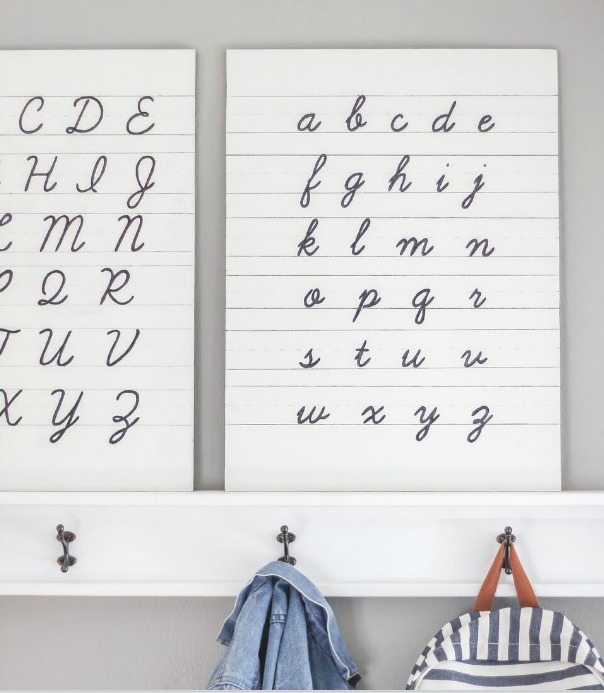 C D E
H I J
L M N
P Q R
T U V
X Y Z
a b c d e
f g h i j
k l m n
o p q r
s t u v
w x y z